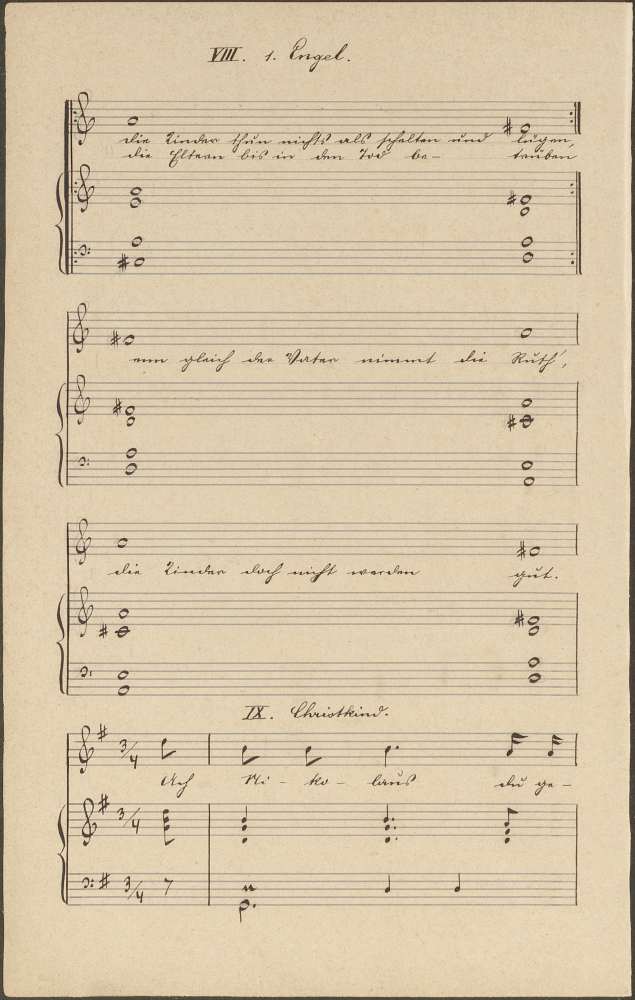 VIII. 1. Engel.
die Kinder thun nichts als schelten und lügen,
die Eltern bis in den Tod be- trüben
wenn gleich der Vater nimmt die Ruth',
die Kinder doch nicht werden gut.
IX. Christkind.
3/4
Ach Ni - ko - laus du ge -
3/4
3/4